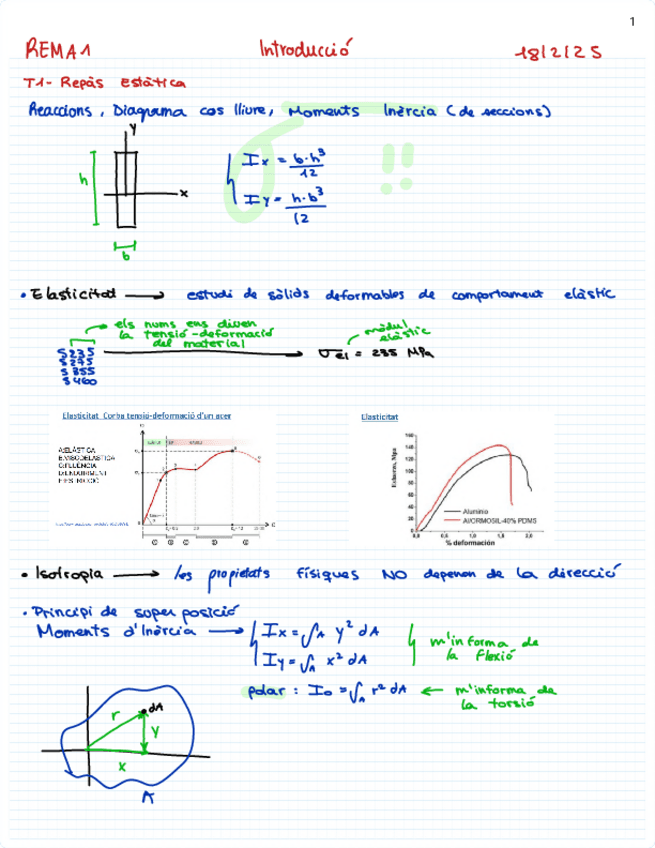 1
REMA1 Introducció 18/2/25
T1- Repàs Estàtica
Reaccions, Diagrama cos lliure, Moments Inèrcia (de seccions)
y
h
x
b
Ix = b·h³/12
Iy = h·b³/12
!!
• Elasticitat → estudi de sòlids deformables de comportament elàstic
els nums ens diuen
la tensió-deformació
del material
mòdul
elàstic
S235 → σel = 235 MPa
S275
S355
S460
Elasticitat Corba tensio-deformació d'un acer
Elasticitat
A:ELÀSTICA
B:VISCOELÀSTICA
C:FLUÈNCIA
Esfuerzo, Mpa
160
140
120
100
80
60
40
20
0
Aluminio
Al/ORMOSIL-40% PDMS
0,0 0,5 1,0 1,5 2,0
% deformación
• Isotropia → les propietats físiques NO depenen de la direcció
• Principi de superposició
Moments d'Inèrcia → Ix = ∫A y² dA
Iy = ∫A x² dA
m'informa de
la flexió
polar : Io = ∫A r² dA ← m'informa de
la torsió
r
dA
y
x
A